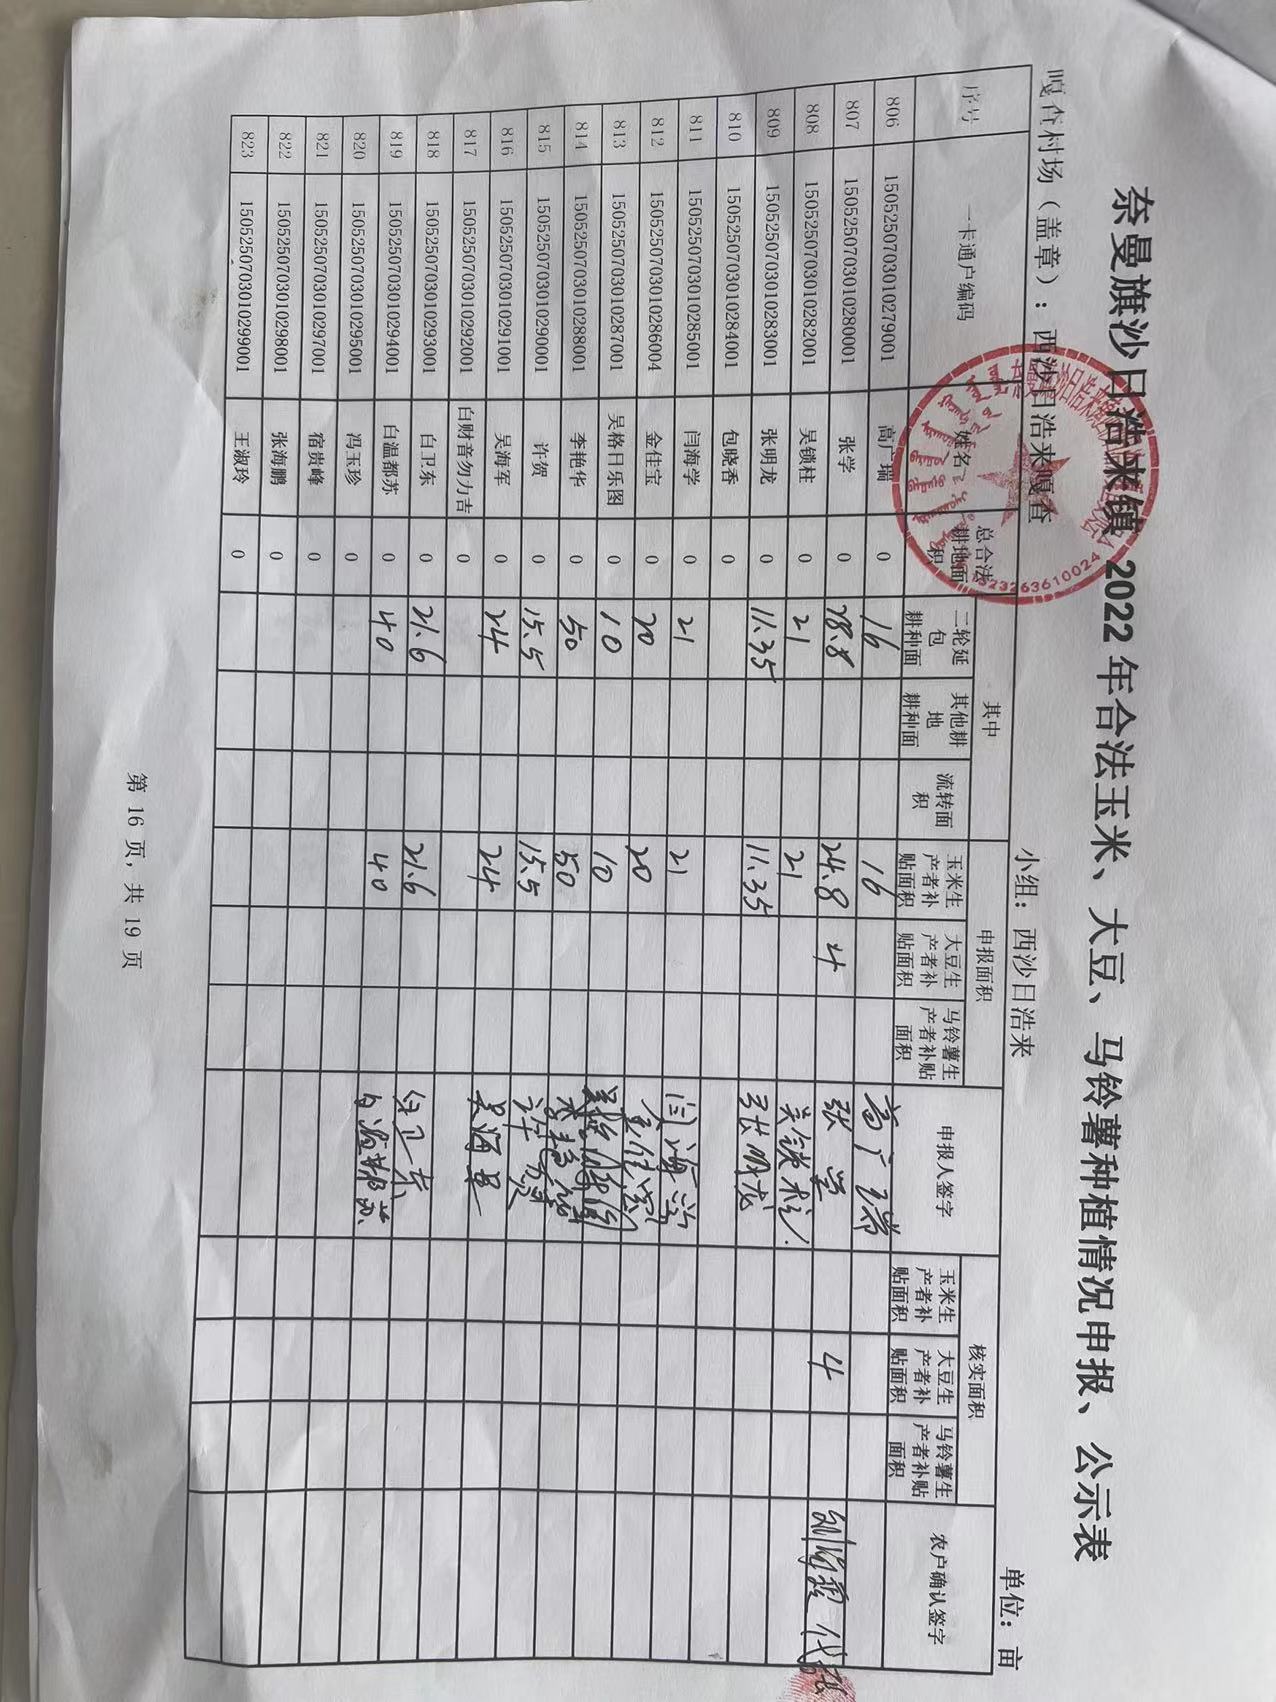 奈曼旗沙日浩来镇 2022 年合法玉米、大豆、马铃薯种植情况申报、公示表
嘎查村场（盖章）：西沙日浩来嘎查 小组：西沙日浩来 单位：亩
序号 一卡通户编码 姓名 总合法耕地面积 其中 申报面积 申报人签字 核实面积 农户确认签字
二轮延包耕种面 其他耕地耕种面 流转面积 玉米生产者补贴面积 大豆生产者补贴面积 马铃薯生产者补贴面积 玉米生产者补贴面积 大豆生产者补贴面积 马铃薯生产者补贴面积
806 1505250703010279001 高广瑞 0 16 16 高广瑞
807 1505250703010280001 张学 0 28.8 24.8 4 张学 4
808 1505250703010282001 吴锁柱 0 21 21 吴锁柱
809 1505250703010283001 张明龙 0 11.35 11.35 张明龙
810 1505250703010284001 包晓香 0
811 1505250703010285001 闫海学 0 21 21 闫海学
812 1505250703010286004 金佳宝 0 20 20 金佳宝
813 1505250703010287001 吴格日乐图 0 10 10
814 1505250703010288001 李艳华 0 50 50 李艳华
815 1505250703010290001 许贺 0 15.5 15.5 许贺
816 1505250703010291001 吴海军 0 24 24 吴海军
817 1505250703010292001 白财音勿力吉 0
818 1505250703010293001 白卫东 0 21.6 21.6 白卫东
819 1505250703010294001 白温都苏 0 40 40 白温都苏
820 1505250703010295001 冯玉珍 0
821 1505250703010297001 宿贵峰 0
822 1505250703010298001 张海鹏 0
823 1505250703010299001 王淑玲 0
第 16 页，共 19 页